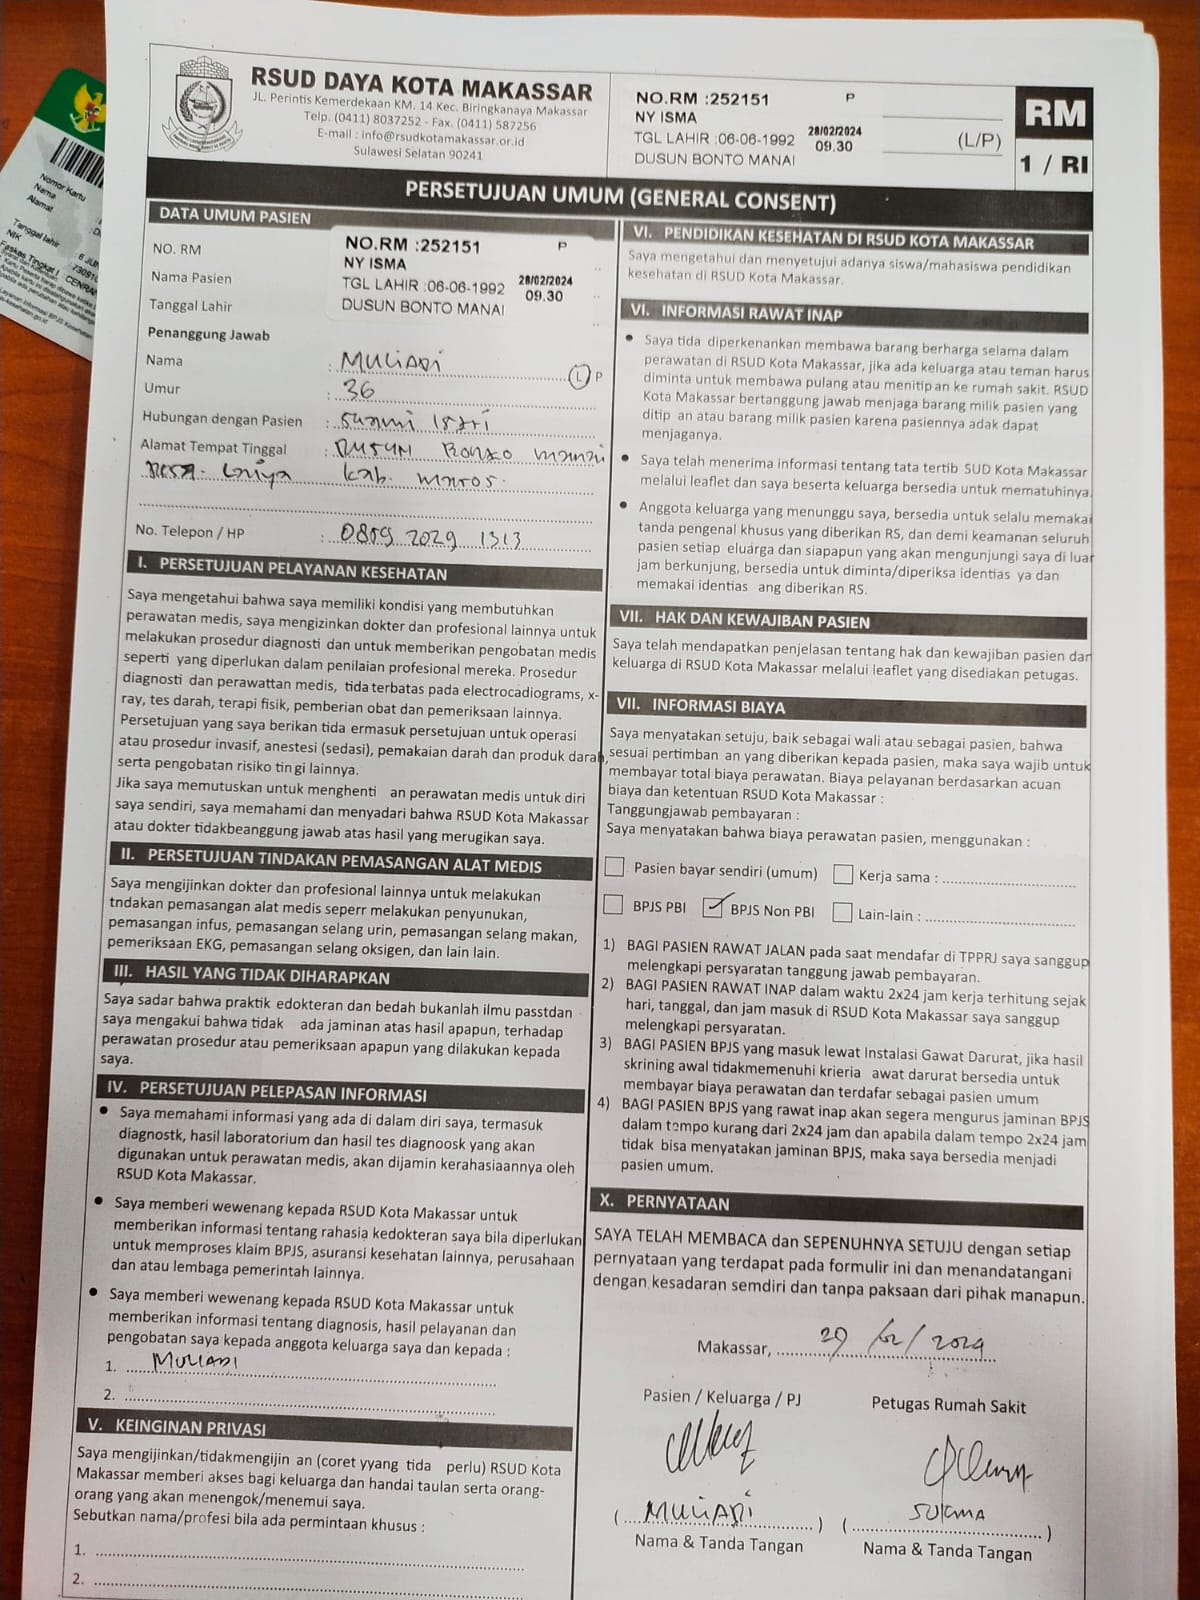 RSUD DAYA KOTA MAKASSAR
JL. Perintis Kemerdekaan KM. 14 Kec. Biringkanaya Makassar
Telp. (0411) 8037252 - Fax. (0411) 587256
E-mail : info@rsudkotamakassar.or.id
Sulawesi Selatan 90241
NO.RM :252151 P
NY ISMA
TGL LAHIR :06-06-1992 28/02/2024 09.30
DUSUN BONTO MANAI
(L/P)
RM
1 / RI
PERSETUJUAN UMUM (GENERAL CONSENT)
DATA UMUM PASIEN
NO. RM
Nama Pasien
Tanggal Lahir
NO.RM :252151 P
NY ISMA
TGL LAHIR :06-06-1992 28/02/2024 09.30
DUSUN BONTO MANAI
Penanggung Jawab
Nama : MULIADI L P
Umur : 36
Hubungan dengan Pasien : Suami Istri
Alamat Tempat Tinggal : Dusun Bonto Manai
Desa. Kab. Maros.
No. Telepon / HP : 0859 2029 1313
I. PERSETUJUAN PELAYANAN KESEHATAN
Saya mengetahui bahwa saya memiliki kondisi yang membutuhkan
perawatan medis, saya mengizinkan dokter dan profesional lainnya untuk
melakukan prosedur diagnosti dan untuk memberikan pengobatan medis
seperti yang diperlukan dalam penilaian profesional mereka. Prosedur
diagnosti dan perawattan medis, tida terbatas pada electrocadiograms, x-
ray, tes darah, terapi fisik, pemberian obat dan pemeriksaan lainnya.
Persetujuan yang saya berikan tida ermasuk persetujuan untuk operasi
atau prosedur invasif, anestesi (sedasi), pemakaian darah dan produk darah,
serta pengobatan risiko tingi lainnya.
Jika saya memutuskan untuk menghenti an perawatan medis untuk diri
saya sendiri, saya memahami dan menyadari bahwa RSUD Kota Makassar
atau dokter tidakbeanggung jawab atas hasil yang merugikan saya.
II. PERSETUJUAN TINDAKAN PEMASANGAN ALAT MEDIS
Saya mengijinkan dokter dan profesional lainnya untuk melakukan
tndakan pemasangan alat medis seperr melakukan penyunukan,
pemasangan infus, pemasangan selang urin, pemasangan selang makan,
pemeriksaan EKG, pemasangan selang oksigen, dan lain lain.
III. HASIL YANG TIDAK DIHARAPKAN
Saya sadar bahwa praktik edokteran dan bedah bukanlah ilmu passtdan
saya mengakui bahwa tidak ada jaminan atas hasil apapun, terhadap
perawatan prosedur atau pemeriksaan apapun yang dilakukan kepada
saya.
IV. PERSETUJUAN PELEPASAN INFORMASI
• Saya memahami informasi yang ada di dalam diri saya, termasuk
diagnostk, hasil laboratorium dan hasil tes diagnoosk yang akan
digunakan untuk perawatan medis, akan dijamin kerahasiaannya oleh
RSUD Kota Makassar.
• Saya memberi wewenang kepada RSUD Kota Makassar untuk
memberikan informasi tentang rahasia kedokteran saya bila diperlukan
untuk memproses klaim BPJS, asuransi kesehatan lainnya, perusahaan
dan atau lembaga pemerintah lainnya.
• Saya memberi wewenang kepada RSUD Kota Makassar untuk
memberikan informasi tentang diagnosis, hasil pelayanan dan
pengobatan saya kepada anggota keluarga saya dan kepada :
1. MULIADI
2.
V. KEINGINAN PRIVASI
Saya mengijinkan/tidakmengijin an (coret yyang tida perlu) RSUD Kota
Makassar memberi akses bagi keluarga dan handai taulan serta orang-
orang yang akan menengok/menemui saya.
Sebutkan nama/profesi bila ada permintaan khusus :
1.
2.
VI. PENDIDIKAN KESEHATAN DI RSUD KOTA MAKASSAR
Saya mengetahui dan menyetujui adanya siswa/mahasiswa pendidikan
kesehatan di RSUD Kota Makassar.
VI. INFORMASI RAWAT INAP
• Saya tida diperkenankan membawa barang berharga selama dalam
perawatan di RSUD Kota Makassar, jika ada keluarga atau teman harus
diminta untuk membawa pulang atau menitipan ke rumah sakit. RSUD
Kota Makassar bertanggung jawab menjaga barang milik pasien yang
ditip an atau barang milik pasien karena pasiennya adak dapat
menjaganya.
• Saya telah menerima informasi tentang tata tertib SUD Kota Makassar
melalui leaflet dan saya beserta keluarga bersedia untuk mematuhinya.
• Anggota keluarga yang menunggu saya, bersedia untuk selalu memakai
tanda pengenal khusus yang diberikan RS, dan demi keamanan seluruh
pasien setiap eluarga dan siapapun yang akan mengunjungi saya di luar
jam berkunjung, bersedia untuk diminta/diperiksa identias ya dan
memakai identias ang diberikan RS.
VII. HAK DAN KEWAJIBAN PASIEN
Saya telah mendapatkan penjelasan tentang hak dan kewajiban pasien dan
keluarga di RSUD Kota Makassar melalui leaflet yang disediakan petugas.
VII. INFORMASI BIAYA
Saya menyatakan setuju, baik sebagai wali atau sebagai pasien, bahwa
sesuai pertimban an yang diberikan kepada pasien, maka saya wajib untuk
membayar total biaya perawatan. Biaya pelayanan berdasarkan acuan
biaya dan ketentuan RSUD Kota Makassar :
Tanggungjawab pembayaran :
Saya menyatakan bahwa biaya perawatan pasien, menggunakan :
Pasien bayar sendiri (umum) Kerja sama :
BPJS PBI ✓ BPJS Non PBI Lain-lain :
1) BAGI PASIEN RAWAT JALAN pada saat mendafar di TPPRJ saya sanggup
melengkapi persyaratan tanggung jawab pembayaran.
2) BAGI PASIEN RAWAT INAP dalam waktu 2x24 jam kerja terhitung sejak
hari, tanggal, dan jam masuk di RSUD Kota Makassar saya sanggup
melengkapi persyaratan.
3) BAGI PASIEN BPJS yang masuk lewat Instalasi Gawat Darurat, jika hasil
skrining awal tidakmemenuhi krieria awat darurat bersedia untuk
membayar biaya perawatan dan terdafar sebagai pasien umum
4) BAGI PASIEN BPJS yang rawat inap akan segera mengurus jaminan BPJS
dalam tempo kurang dari 2x24 jam dan apabila dalam tempo 2x24 jam
tidak bisa menyatakan jaminan BPJS, maka saya bersedia menjadi
pasien umum.
X. PERNYATAAN
SAYA TELAH MEMBACA dan SEPENUHNYA SETUJU dengan setiap
pernyataan yang terdapat pada formulir ini dan menandatangani
dengan kesadaran semdiri dan tanpa paksaan dari pihak manapun.
Makassar, 29/02/2024
Pasien / Keluarga / PJ Petugas Rumah Sakit
(MULIADI) (SUKMA)
Nama & Tanda Tangan Nama & Tanda Tangan
Nomor Kartu
Nama
Alamat
Tanggal lahir
NIK
Faskes Tingkat I